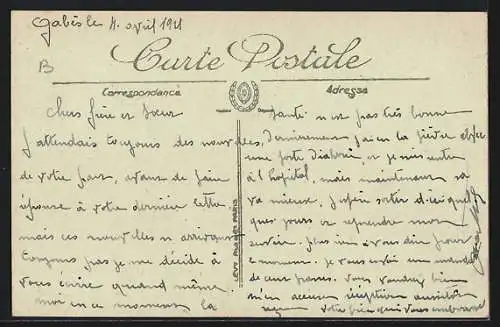 Gabès le 4 avril 1921
B
Carte Postale
Correspondance
Adresse
Chers frère et Sœur
J'attendais toujours des nouvelles,
de votre part, avant de faire
réponse à votre dernière lettre
mais ces nouvelles n arrivant
toujours pas je me décide à
vous écrire quand même
moi en ce moment la
LEVY FILS & Cie PARIS
Santé n est pas très bonne
Dernièrement j'ai eu la fièvre avec
une forte diahrée, et je suis entré
à l hôpital, mais maintenant sa
va mieux. J espère sortir d'ici quel
ques jours et reprendre mon
service. Plus rien à vous dire pour
le moment. Je vous envoie un mandat
de cent francs. Vous voudrez bien
m'en accuser réception aussitôt
reçu Votre frère qui vous embrasse